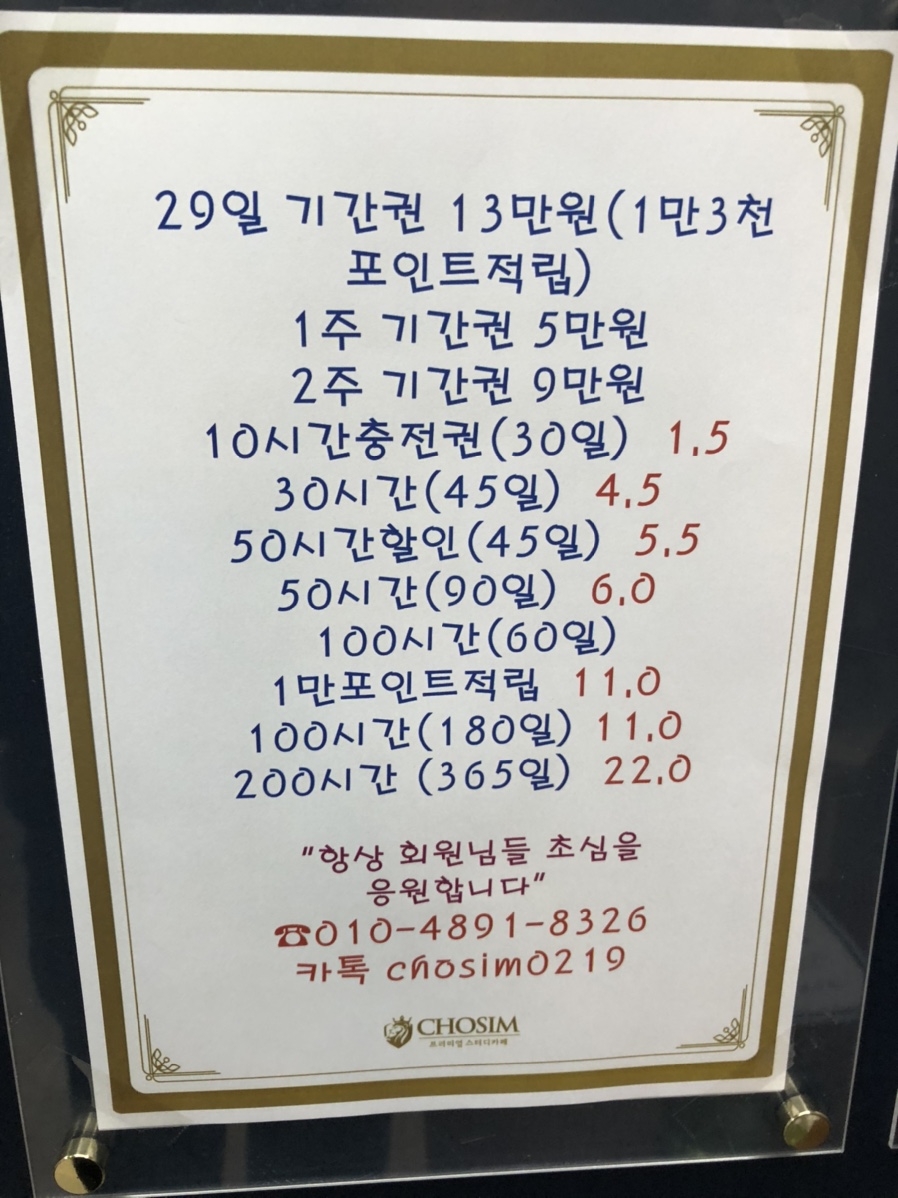 29일 기간권 13만원(1만3천
포인트적립)
1주 기간권 5만원
2주 기간권 9만원
10시간충전권(30일) 1.5
30시간(45일) 4.5
50시간할인(45일) 5.5
50시간(90일) 6.0
100시간(60일)
1만포인트적립 11.0
100시간(180일) 11.0
200시간 (365일) 22.0
"항상 회원님들 초심을
응원합니다"
☎010-4891-8326
카톡 chosim0219
CHOSIM
프리미엄 스터디카페